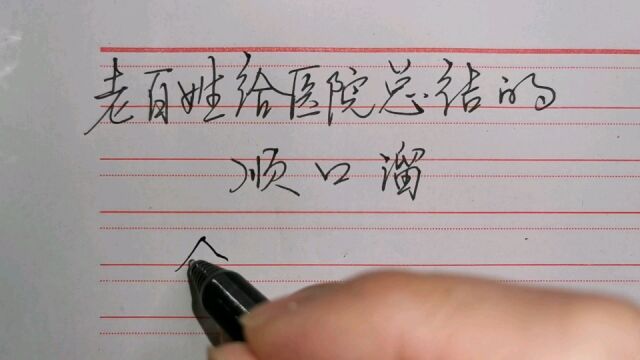 老百姓给医院总结的
顺口溜